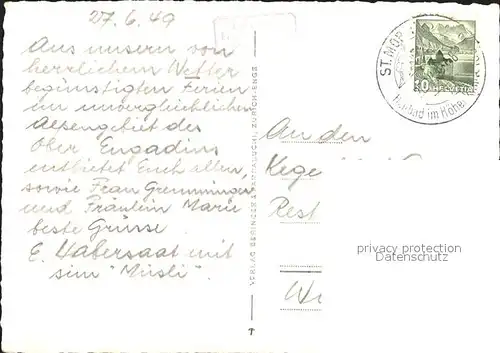 27.6.49
Aus unsern von
herrlichem Wetter
begünstigten Ferien
im unvergleichlichen
Alpengebiet des
Ober Engadins
entbietet Euch allen,
sowie Frau Gremminger
und Fräulein Marie
beste Grüsse.
E. Habersaat mit
sim "Müsli".
VERLAG BERINGER & PAMPALUCHI, ZÜRICH-ENGE
ST. MOR
Heilbad im Hoche
HELVETIA
An den
Kege
Rest
privacy protection
Datenschutz